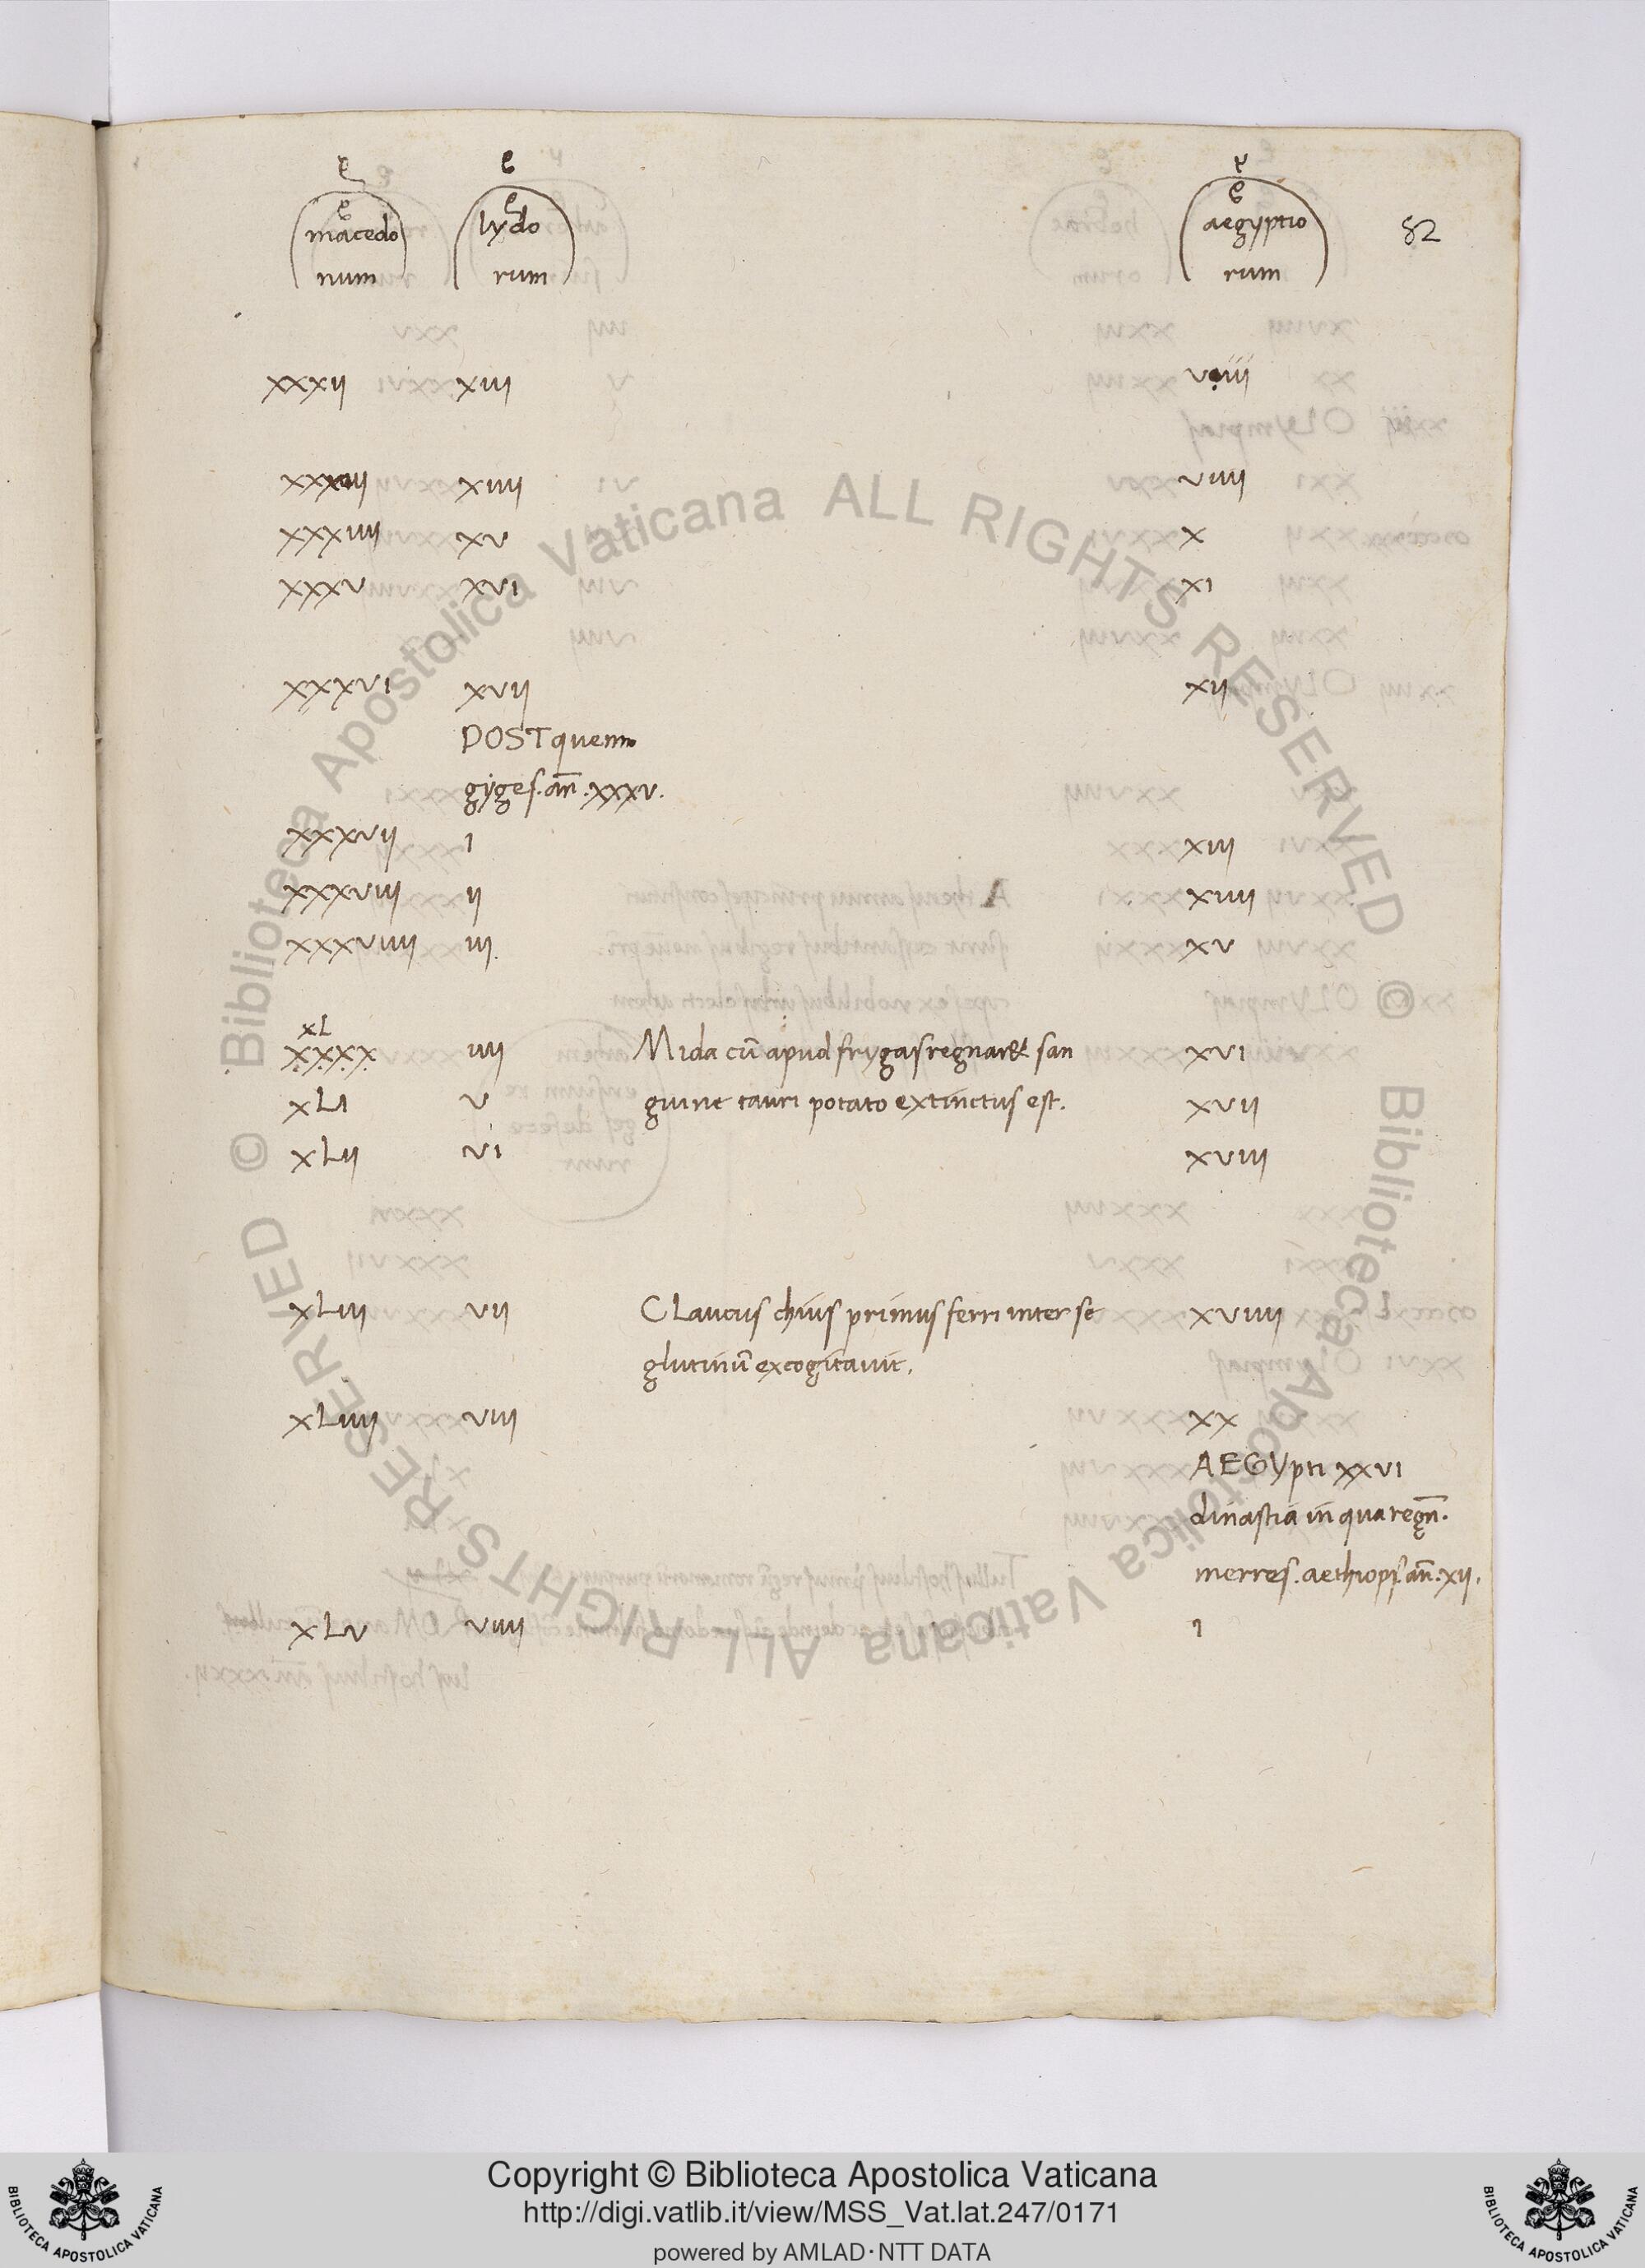 macedo lydo aegyptio 82
num rum rum
xxxii xiii viiii
xxxiii xiiii viiii
xxxiiii xv x
xxxv xvi xi
xxxvi xvii xii
POST quem
gyges. an̄. xxxv.
xxxvii i xiii
xxxviii ii xiiii
xxxviiii iii. xv
xL
xxxx iiii Mida cū apud frygas regnar& san xvi
xLi v guine tauri potato extinctus est. xvii
xLii vi xviii
xLiii vii CLaucus chius primus ferri inter se xviiii
glutinū excogitavit.
xLiiii viii xx
AEGYpti xxvi
dinastia in qua regn̄.
merres. aethiops. an̄. xii.
xLv viiii i
Biblioteca Apostolica Vaticana ALL RIGHTS RESERVED ©
Biblioteca Apostolica Vaticana ALL RIGHTS RESERVED ©
Copyright © Biblioteca Apostolica Vaticana
http://digi.vatlib.it/view/MSS_Vat.lat.247/0171
powered by AMLAD·NTT DATA
BIBLIOTECA APOSTOLICA VATICANA
BIBLIOTECA APOSTOLICA VATICANA